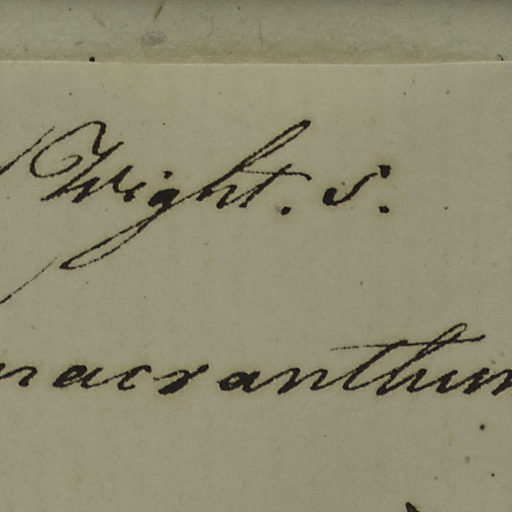 Wight. s.
macranthum